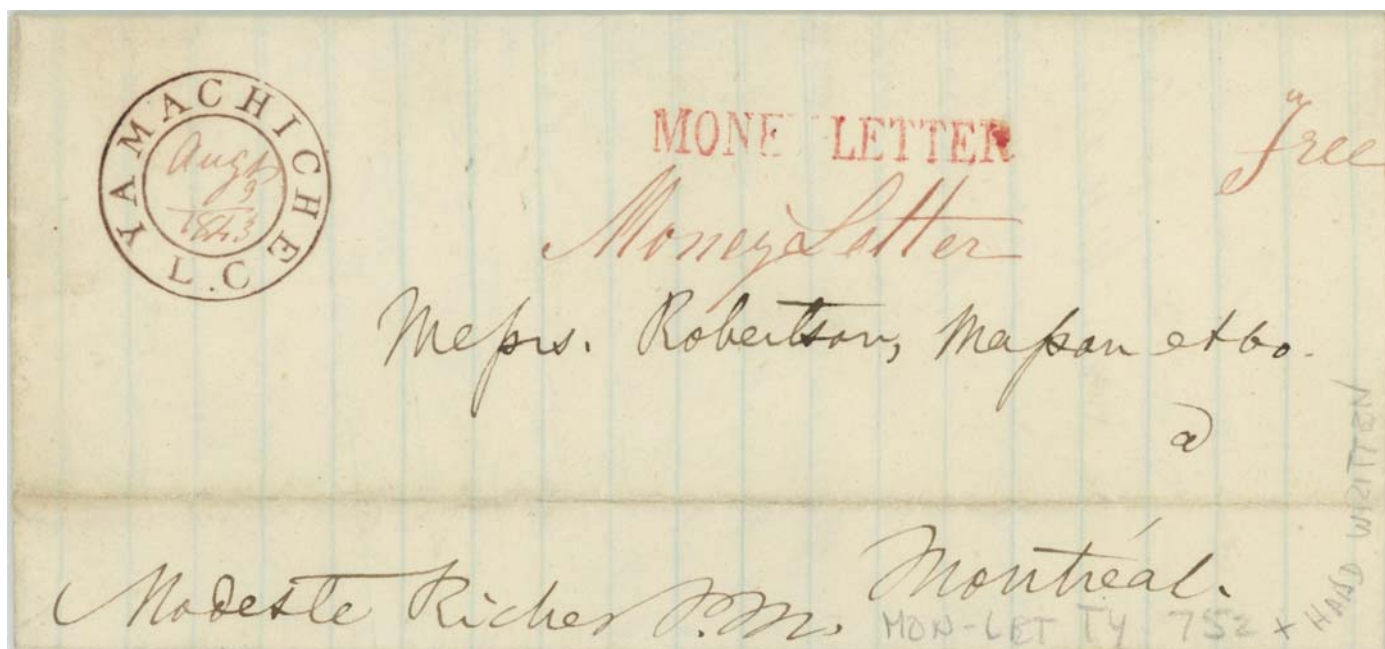 YAMACHICHE
L.C
Augt
9
1843
MONE LETTER
"Free
Money Letter
Messrs. Robertson, Masson et Co.
à
Montréal.
Modeste Richer P.M.
MON-LET TY 752 X HAND WRITTEN